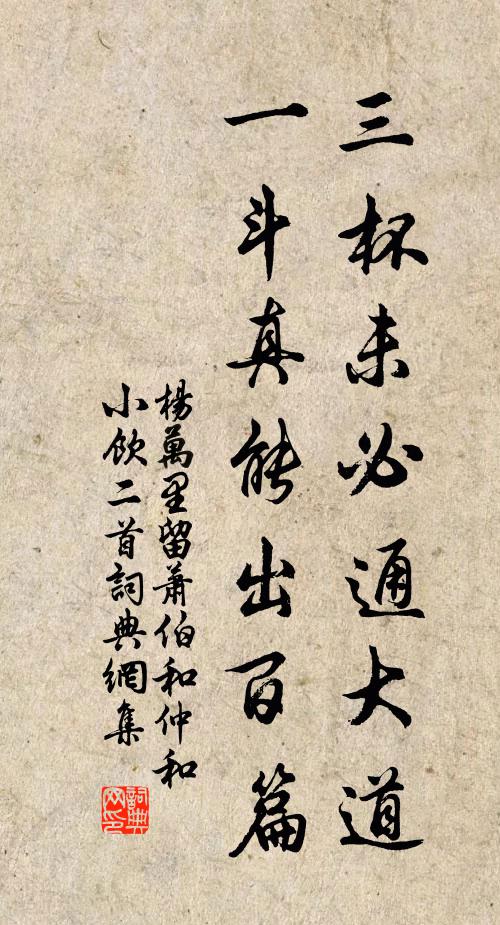 三杯未必通大道
一斗真能出百篇
楊萬里留蕭伯和仲和
小飲二首詞典網集
詞典
网印